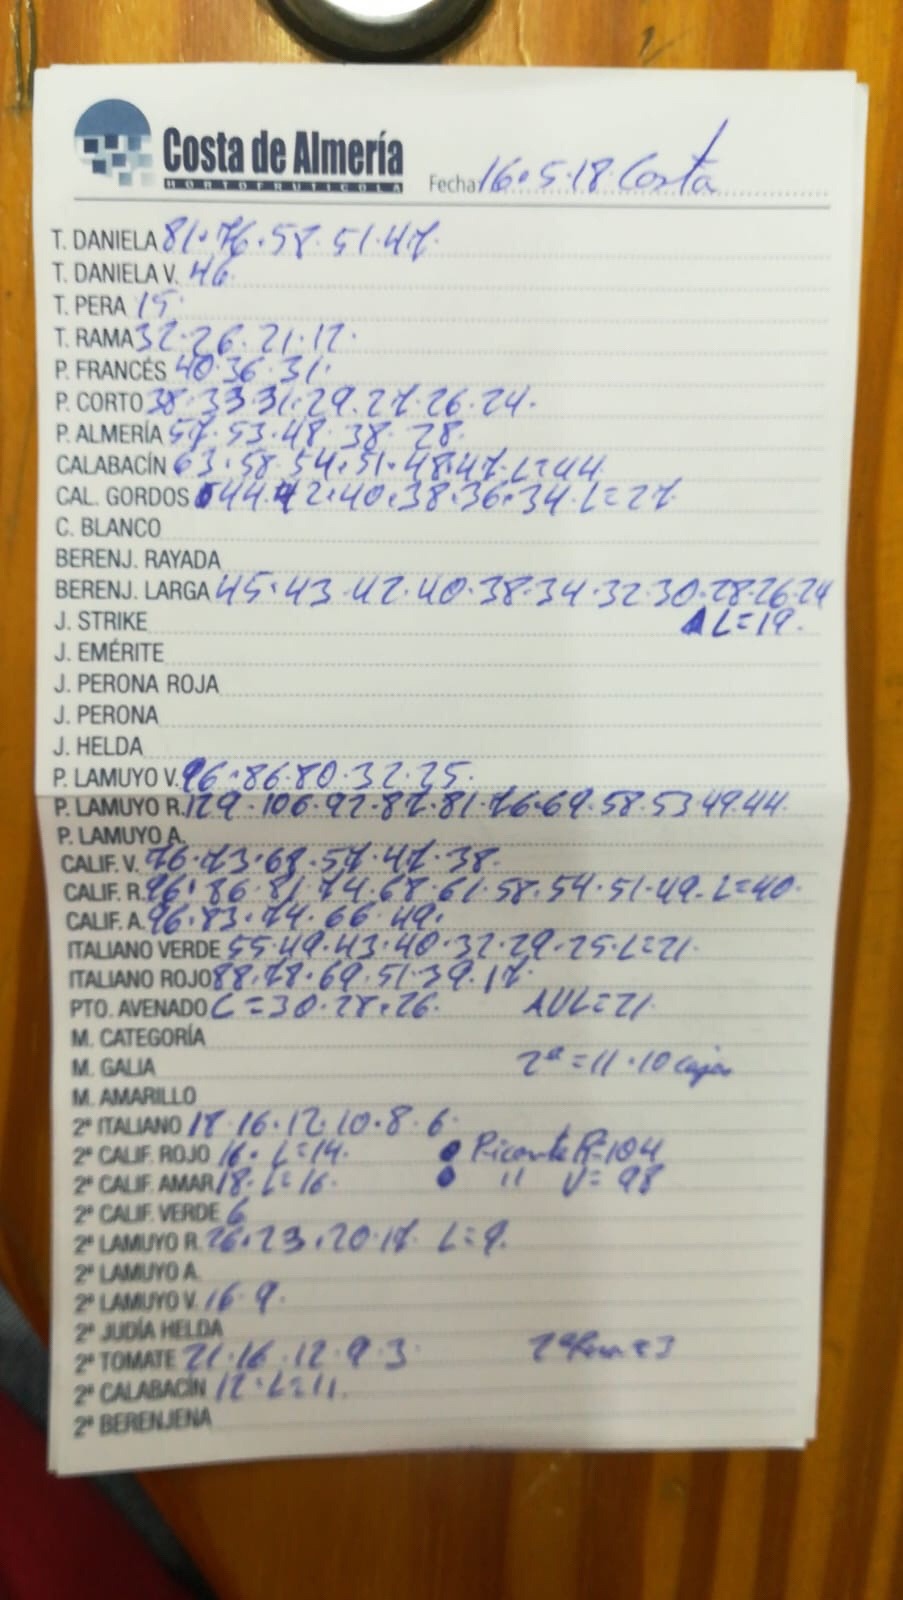 Costa de Almería
HORTOFRUTICOLA
Fecha 16.5.18 Costa
T. DANIELA 81.76.58.51.47.
T. DANIELA V. 46.
T. PERA 15.
T. RAMA 32.26.21.12.
P. FRANCÉS 40.36.31.
P. CORTO 38.33.31.29.27.26.24.
P. ALMERÍA 57.53.48.38.28.
CALABACÍN 63.58.54.51.48.47.L=44
CAL. GORDOS 44.42.40.38.36.34.L=27.
C. BLANCO
BERENJ. RAYADA
BERENJ. LARGA 45.43.42.40.38.34.32.30.28.26.24
J. STRIKE L=19.
J. EMÉRITE
J. PERONA ROJA
J. PERONA
J. HELDA
P. LAMUYO V. 96.86.80.32.25.
P. LAMUYO R. 129.106.92.87.81.76.69.58.53.49.44.
P. LAMUYO A.
CALIF. V. 76.73.68.57.47.38.
CALIF. R. 96.86.81.74.68.61.58.54.51.49.L=40.
CALIF. A. 96.83.74.66.49.
ITALIANO VERDE 55.49.43.40.32.29.25.L=21.
ITALIANO ROJO 88.78.69.51.39.17.
PTO. AVENADO L=30.28.26. AVL=21.
M. CATEGORÍA
M. GALIA 2ª=11.10 cajas
M. AMARILLO
2ª ITALIANO 18.16.12.10.8.6.
2ª CALIF. ROJO 16. L=14. Picante R=104
2ª CALIF. AMAR 18.L=16. " V=98
2ª CALIF. VERDE 6
2ª LAMUYO R. 26.23.20.17. L=9.
2ª LAMUYO A.
2ª LAMUYO V. 16.9.
2ª JUDÍA HELDA
2ª TOMATE 21.16.12.9.3. 2ª =3
2ª CALABACÍN 12.L=11.
2ª BERENJENA